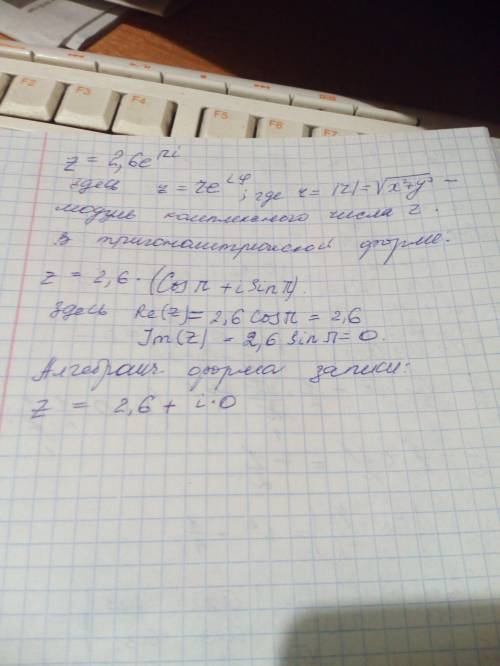 F2
F3
F4
F5
F6
z = 2,6e^{πi}
здесь z = re^{iφ}; где r = |z| = √(x²+y²) –
модуль комплексного числа z.
В тригонометрической форме:
z = 2,6·(cosπ + i sinπ).
здесь Re(z) = 2,6 cosπ = 2,6
Im(z) = 2,6 sinπ = 0.
Алгебраич. форма записи:
z = 2,6 + i·0